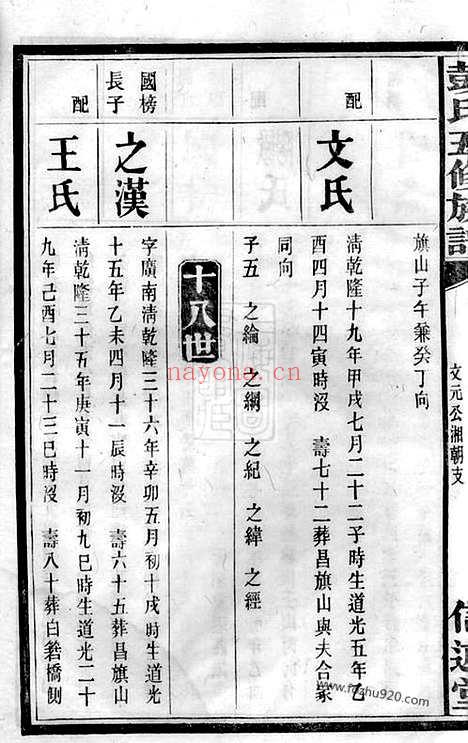 彭氏五修族譜
文元公湘朝支
信述堂
旗山子午兼癸丁向
配
文氏
清乾隆十九年甲戌七月二十二子時生道光五年乙
酉四月十四寅時沒 壽七十二葬昌旗山與夫合冢
同向
子五 之綸 之綱 之紀 之緯 之經
十八世
國榜
長子
之漢
字廣南清乾隆三十六年辛卯五月初十戌時生道光
十五年乙未四月十一辰時沒 壽六十五葬昌旗山
配
王氏
清乾隆三十五年庚寅十一月初九巳時生道光二十
九年己酉七月二十三巳時沒 壽八十葬白箬橋側
nayona.cn
www.fozhu920.com